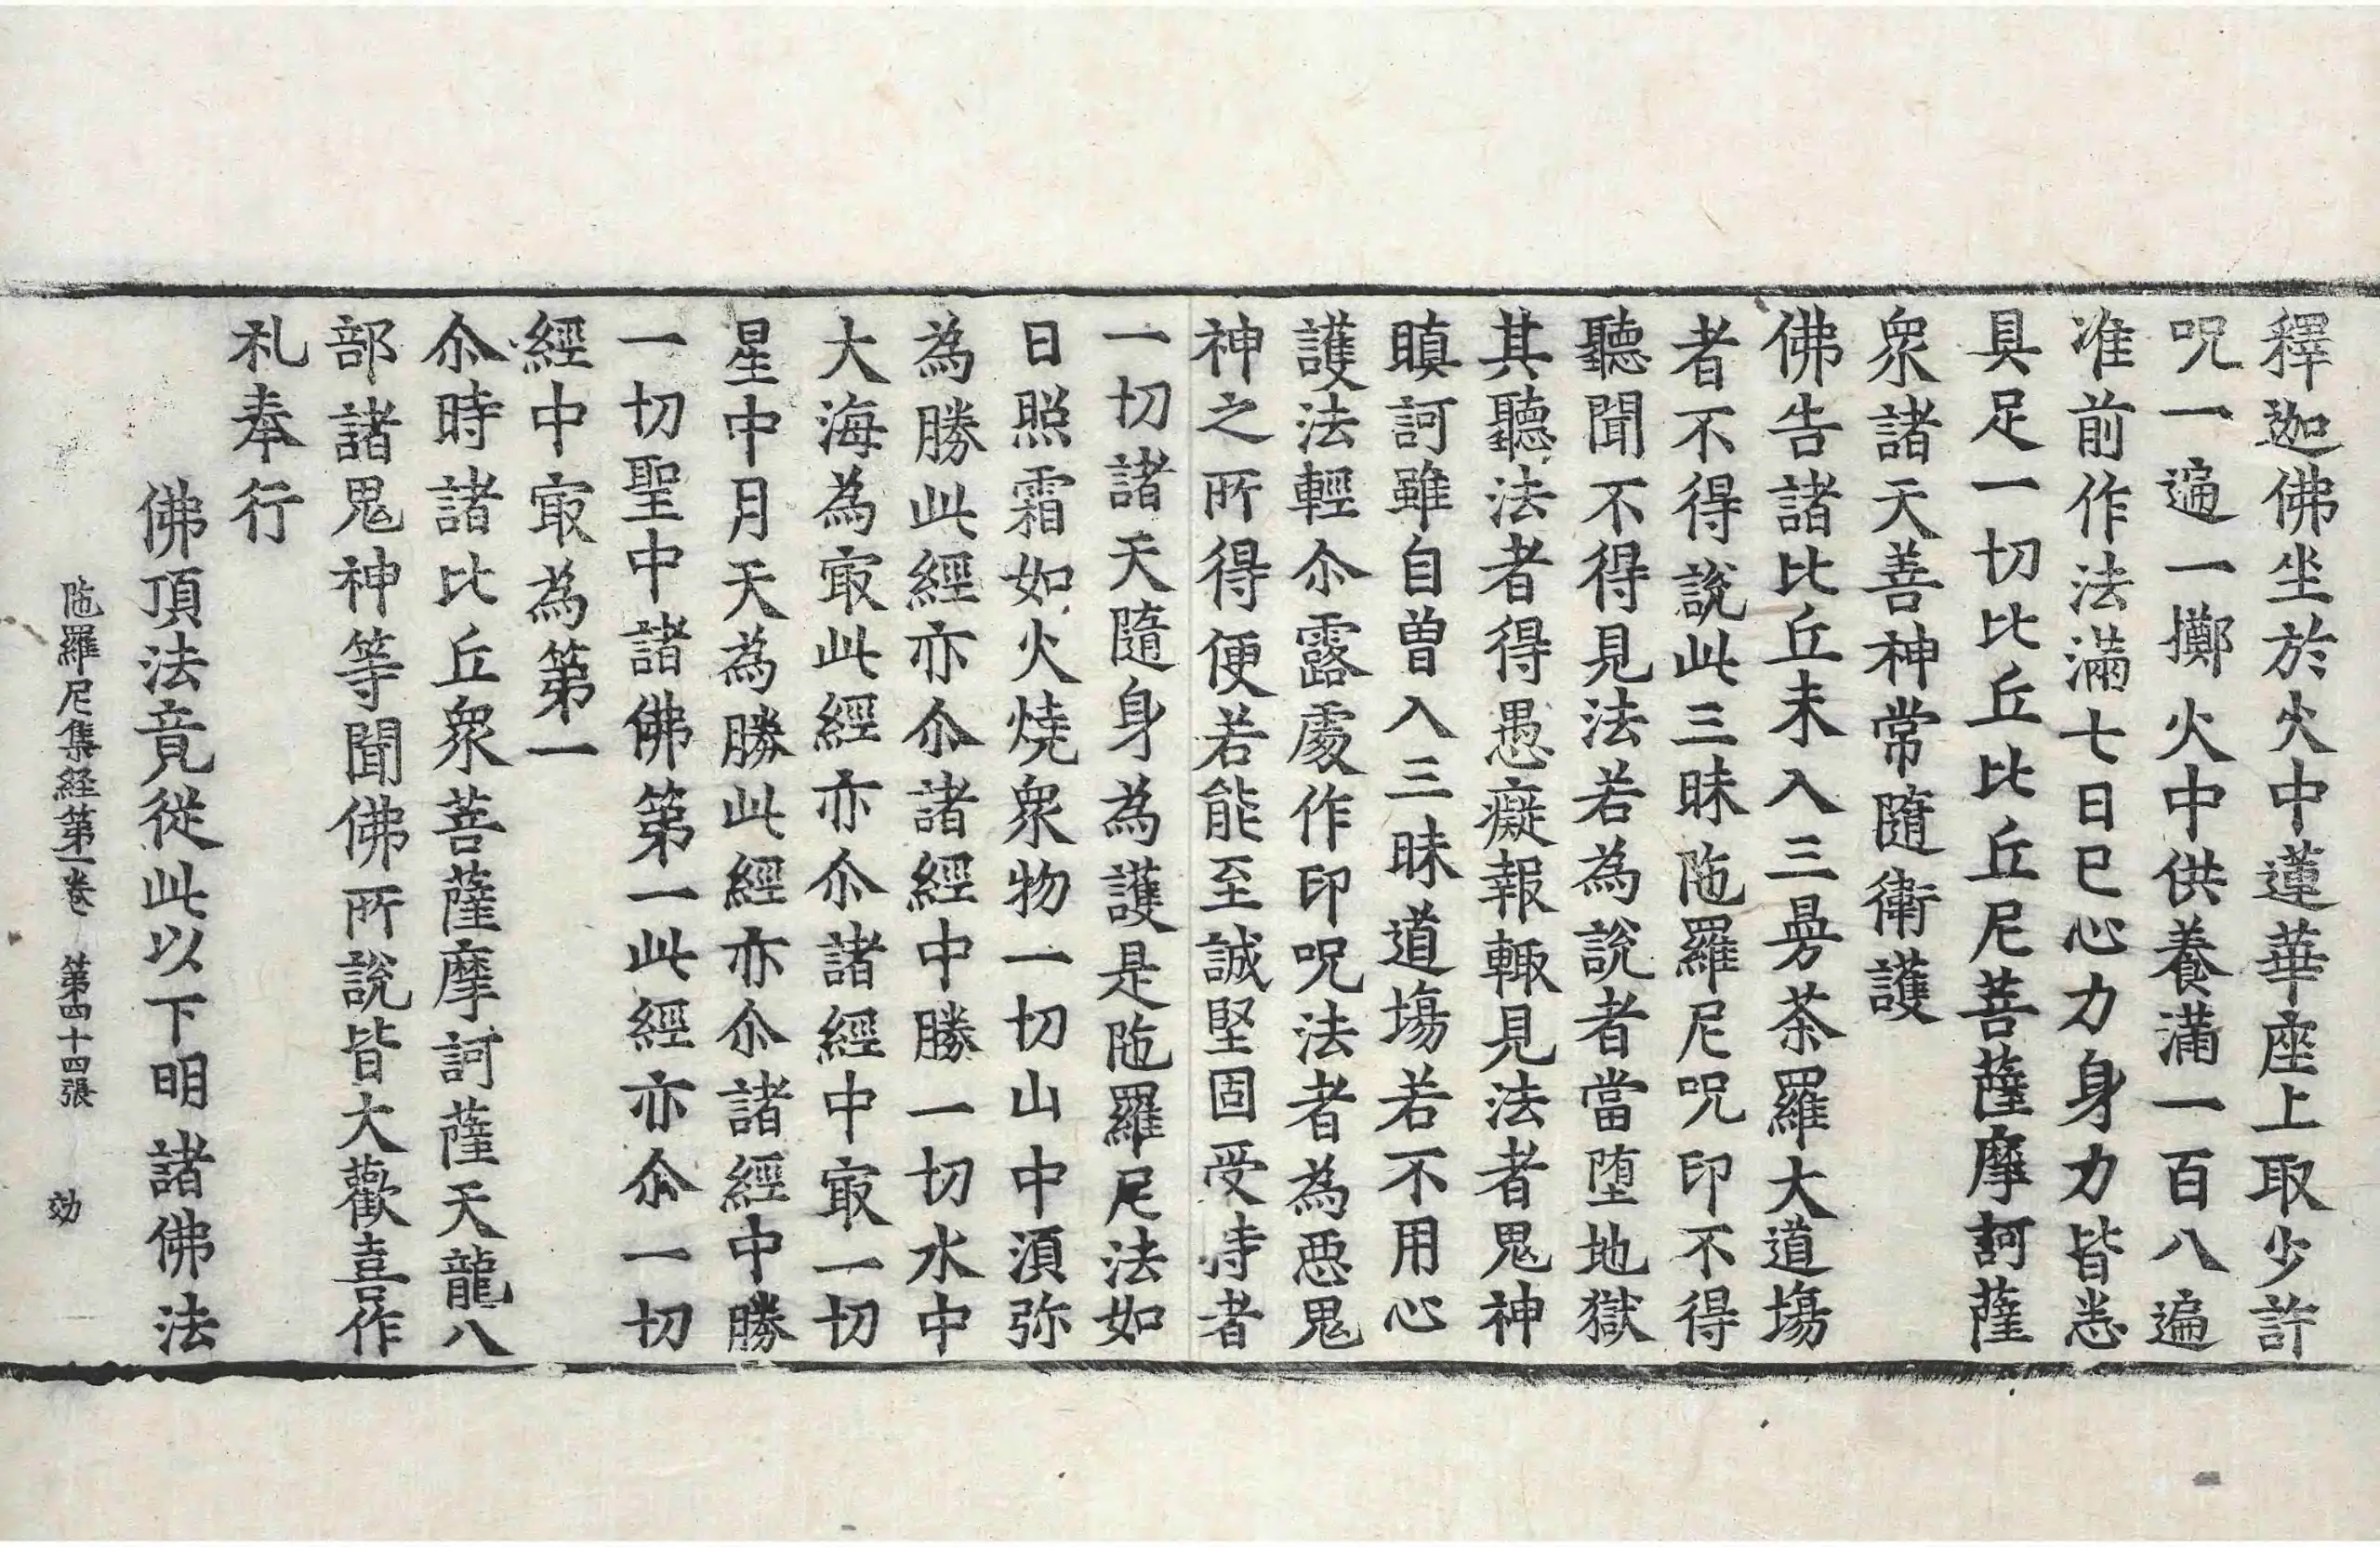 釋迦佛坐於火中蓮華座上取少許
呪一遍一擲火中供養滿一百八遍
准前作法滿七日已心力身力皆悉
具足一切比丘比丘尼菩薩摩訶薩
衆諸天善神常隨衛護
佛告諸比丘未入三曼茶羅大道塲
者不得說此三昧陁羅尼呪印不得
聽聞不得見法若為說者當堕地獄
其聽法者得愚癡報輙見法者鬼神
瞋訶雖自曽入三昧道塲若不用心
護法輕尒露處作印呪法者為惡鬼
神之所得便若能至誠堅固受持者
一切諸天隨身為護是陁羅尼法如
日照霜如火燒衆物一切山中湏弥
為勝此經亦尒諸經中勝一切水中
大海為㝡此經亦尒諸經中㝡一切
星中月天為勝此經亦尒諸經中勝
一切聖中諸佛第一此經亦尒一切
經中㝡為第一
尒時諸比丘衆菩薩摩訶薩天龍八
部諸鬼神等聞佛所說皆大歡喜作
礼奉行
佛頂法竟從此以下明諸佛法
陁羅尼集経第一卷 第四十四張 効